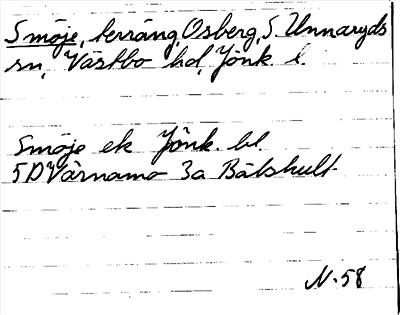 Smöje, terräng, Osberg, S. Unnaryds
sn, Västbo hd, Jönk. l.
Smöje ek Jönk. bl.
5D Värnamo 3a Båtshult
N. 58